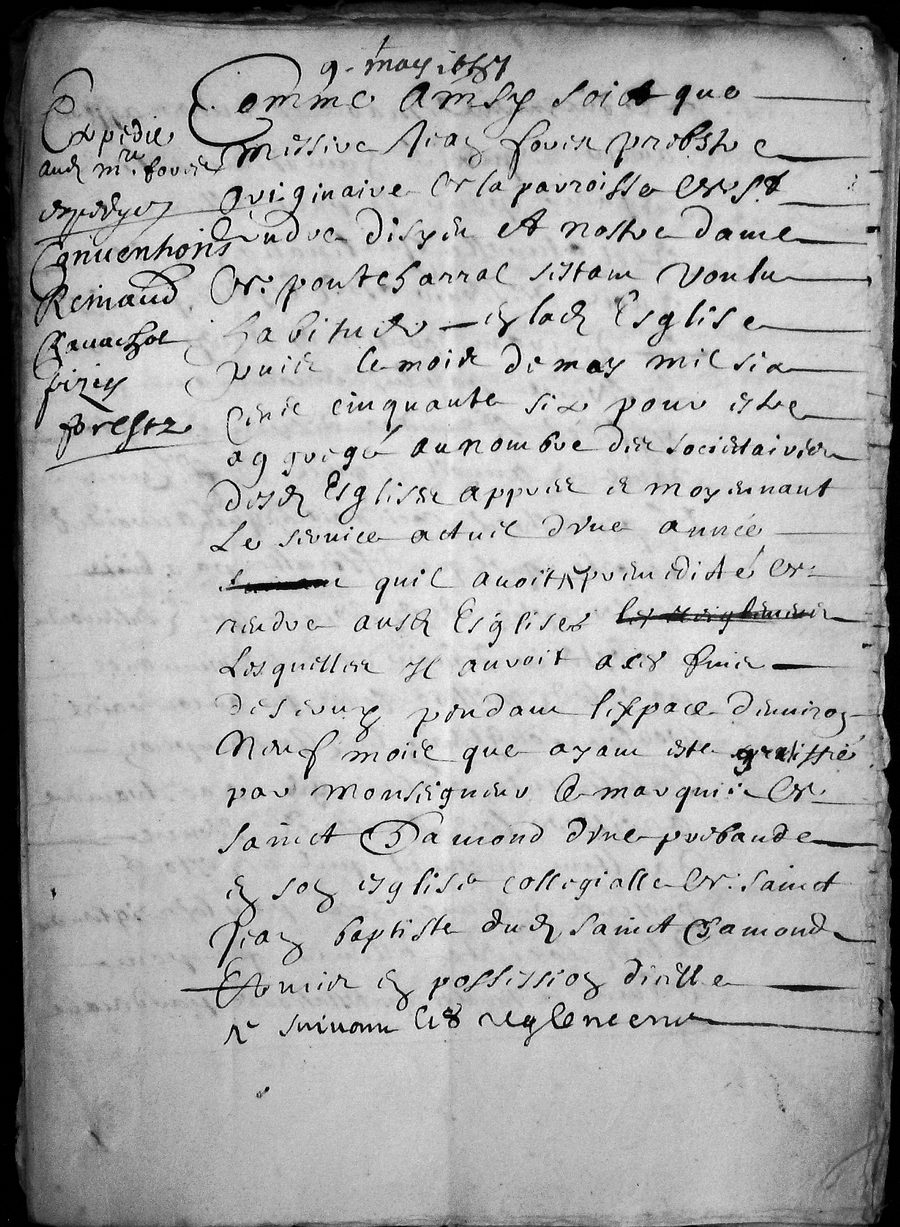 9. may 1657
Expedie
aud mre. fover
Conventions
Reinaud
Gavachot
fizey
forestz
Comme Ainsy soict que
Messire Jean fover prebstre
originaire de la parroisse de St
Andre disyeu et nostre dame
de pontcharral sestant voulu
habitude en lad Esglise
puis le mois de may mil six
Cens cinquante six pour estre
aggregé au nombre des societaires
desd Esglises appres et moyennant
Le service actuel d'une année
quil avoit premedité de
rendre ausd Esglises
Lesquelles Il auroit a ces fins
deservy pendant lespace denviron
Neuf mois que ayant este gratiffié
par Monseigneur le marquis de
Sainct Chamond d'une prebande
en son esglise collegialle de Sainct
Jean baptiste dud Sainct Chamond
Et mis en possession dicelle
suivant les reglements